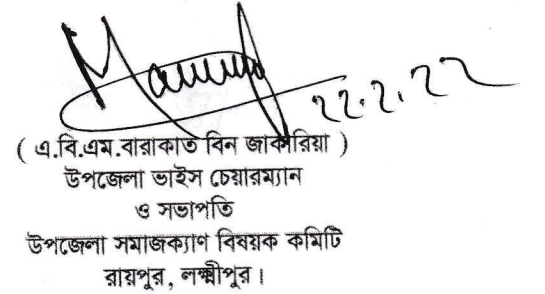 ২২.২.২২
( এ.বি.এম.বারাকাত বিন জাকারিয়া )
উপজেলা ভাইস চেয়ারম্যান
ও সভাপতি
উপজেলা সমাজকল্যাণ বিষয়ক কমিটি
রায়পুর, লক্ষ্মীপুর।